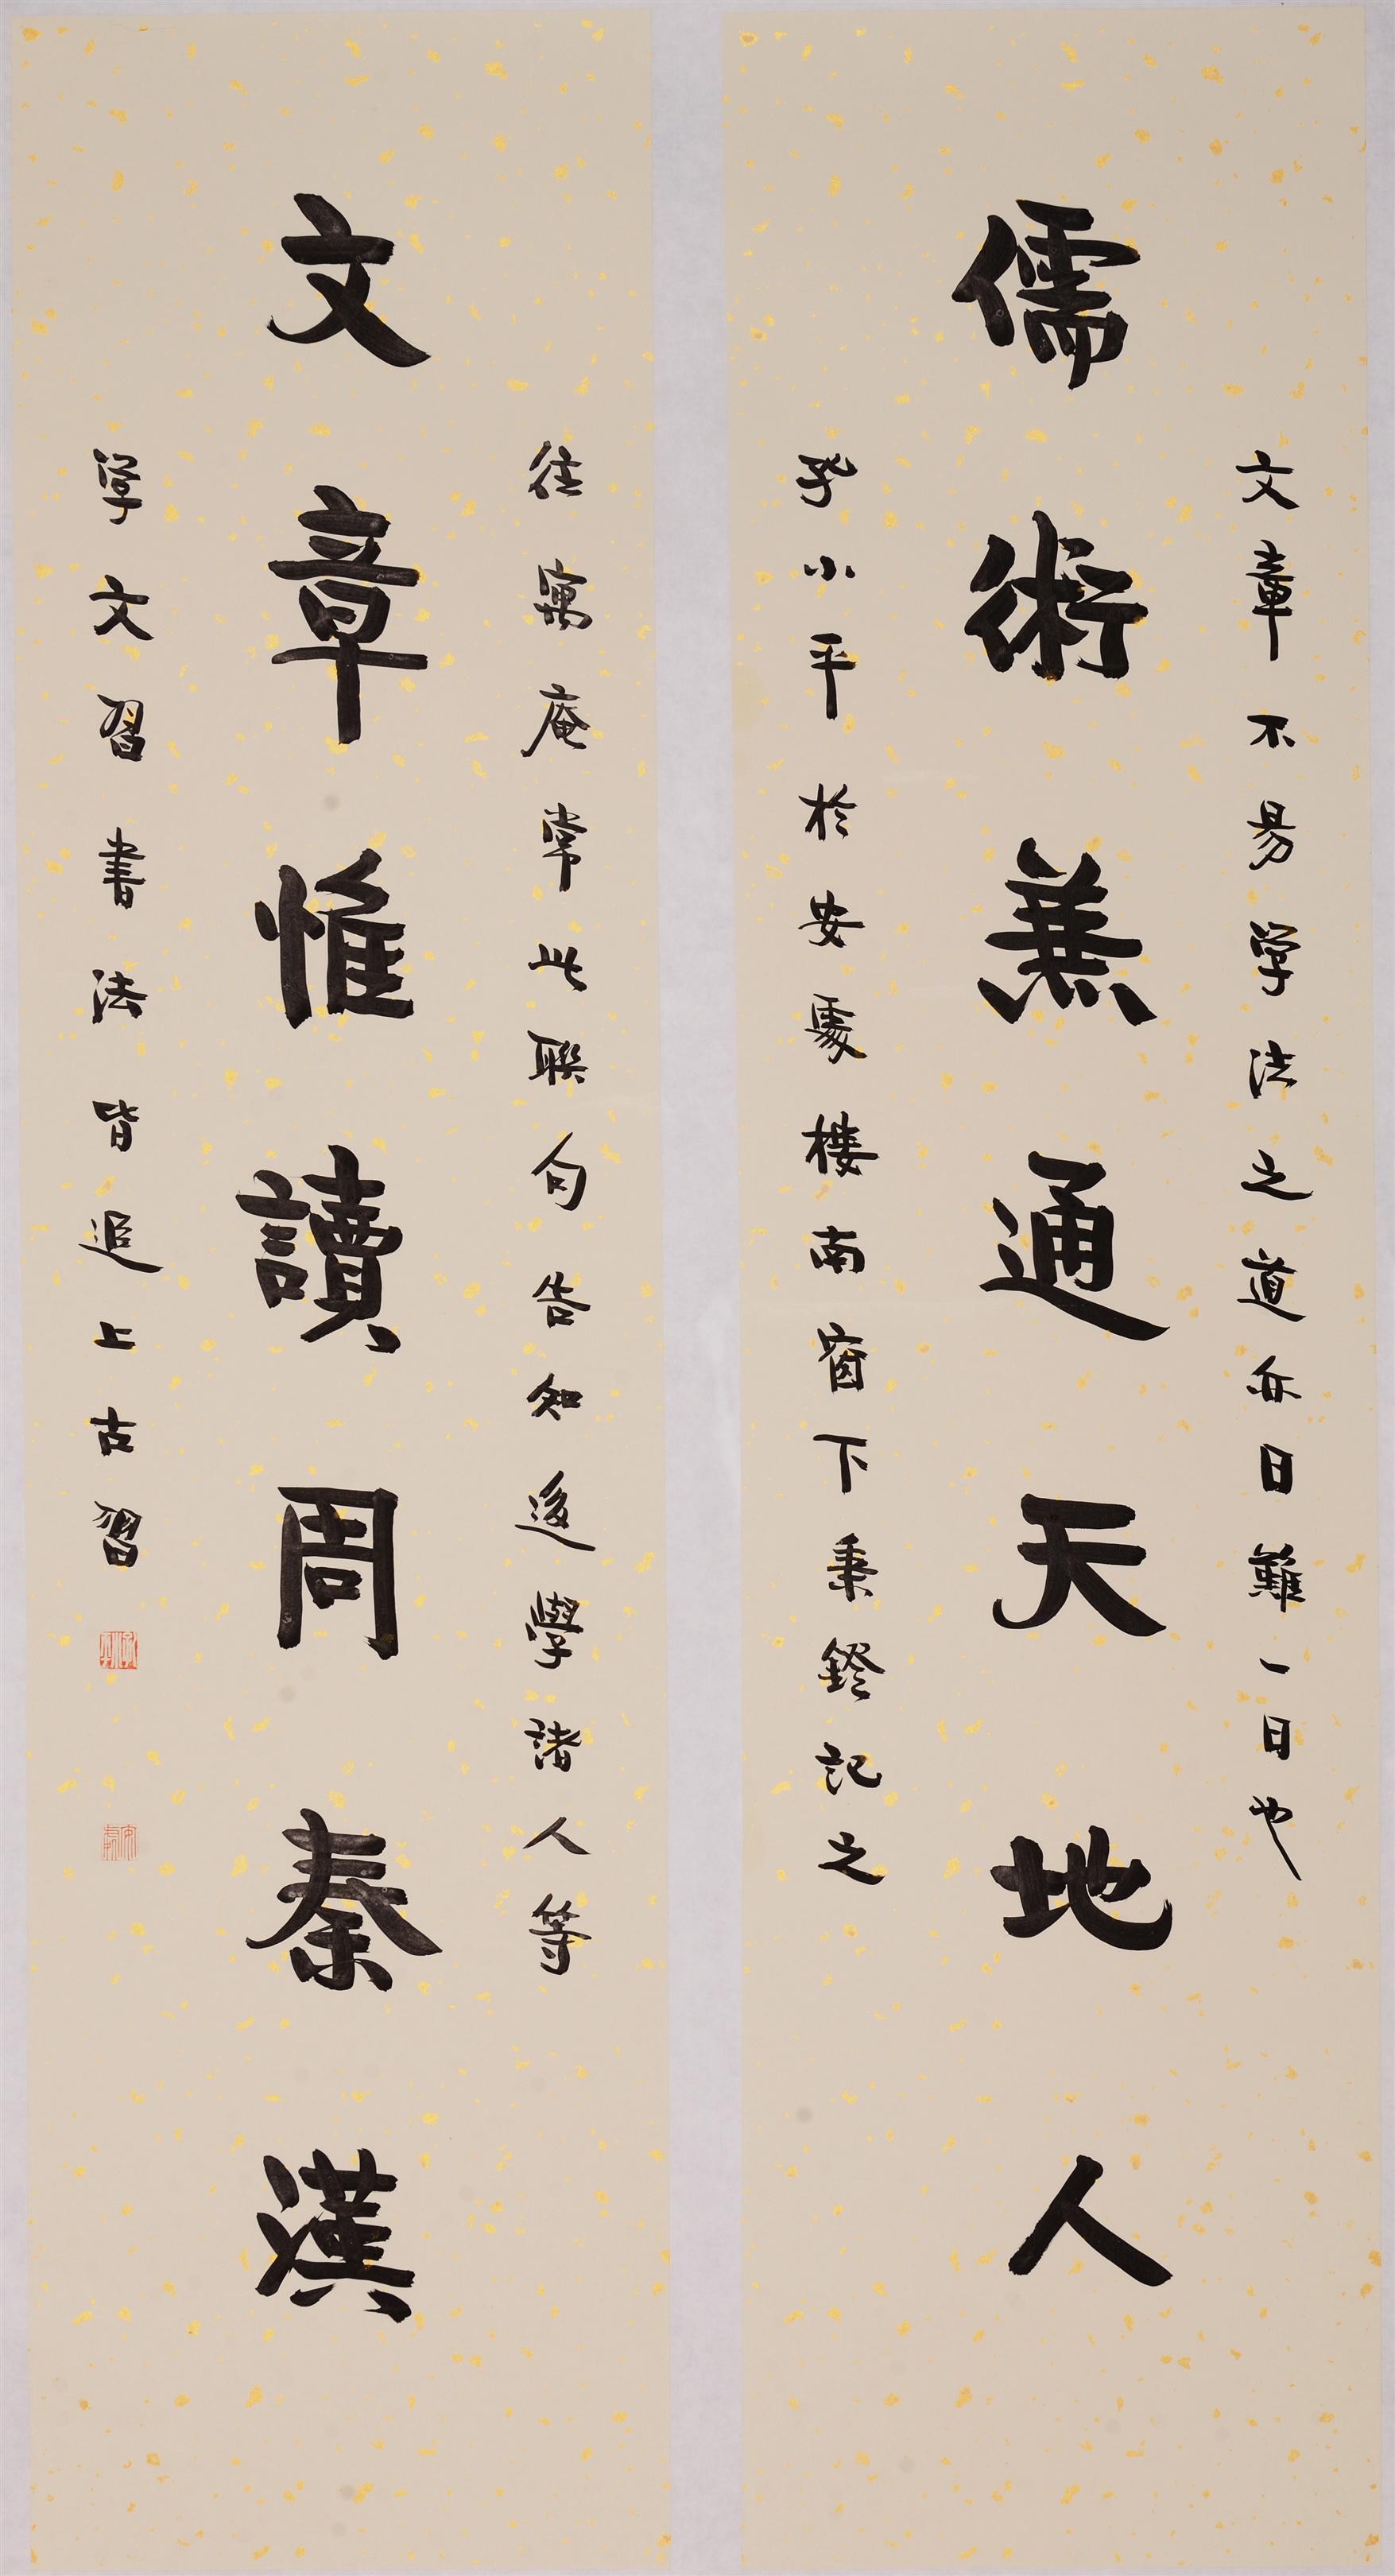 文章不易学法之道亦日難一日也
儒術兼通天地人
小平於安處樓南窗下秉鐙記之
往寓庵常此聯句告知後學諸人等
文章惟讀周秦漢
学文習書法皆追上古習